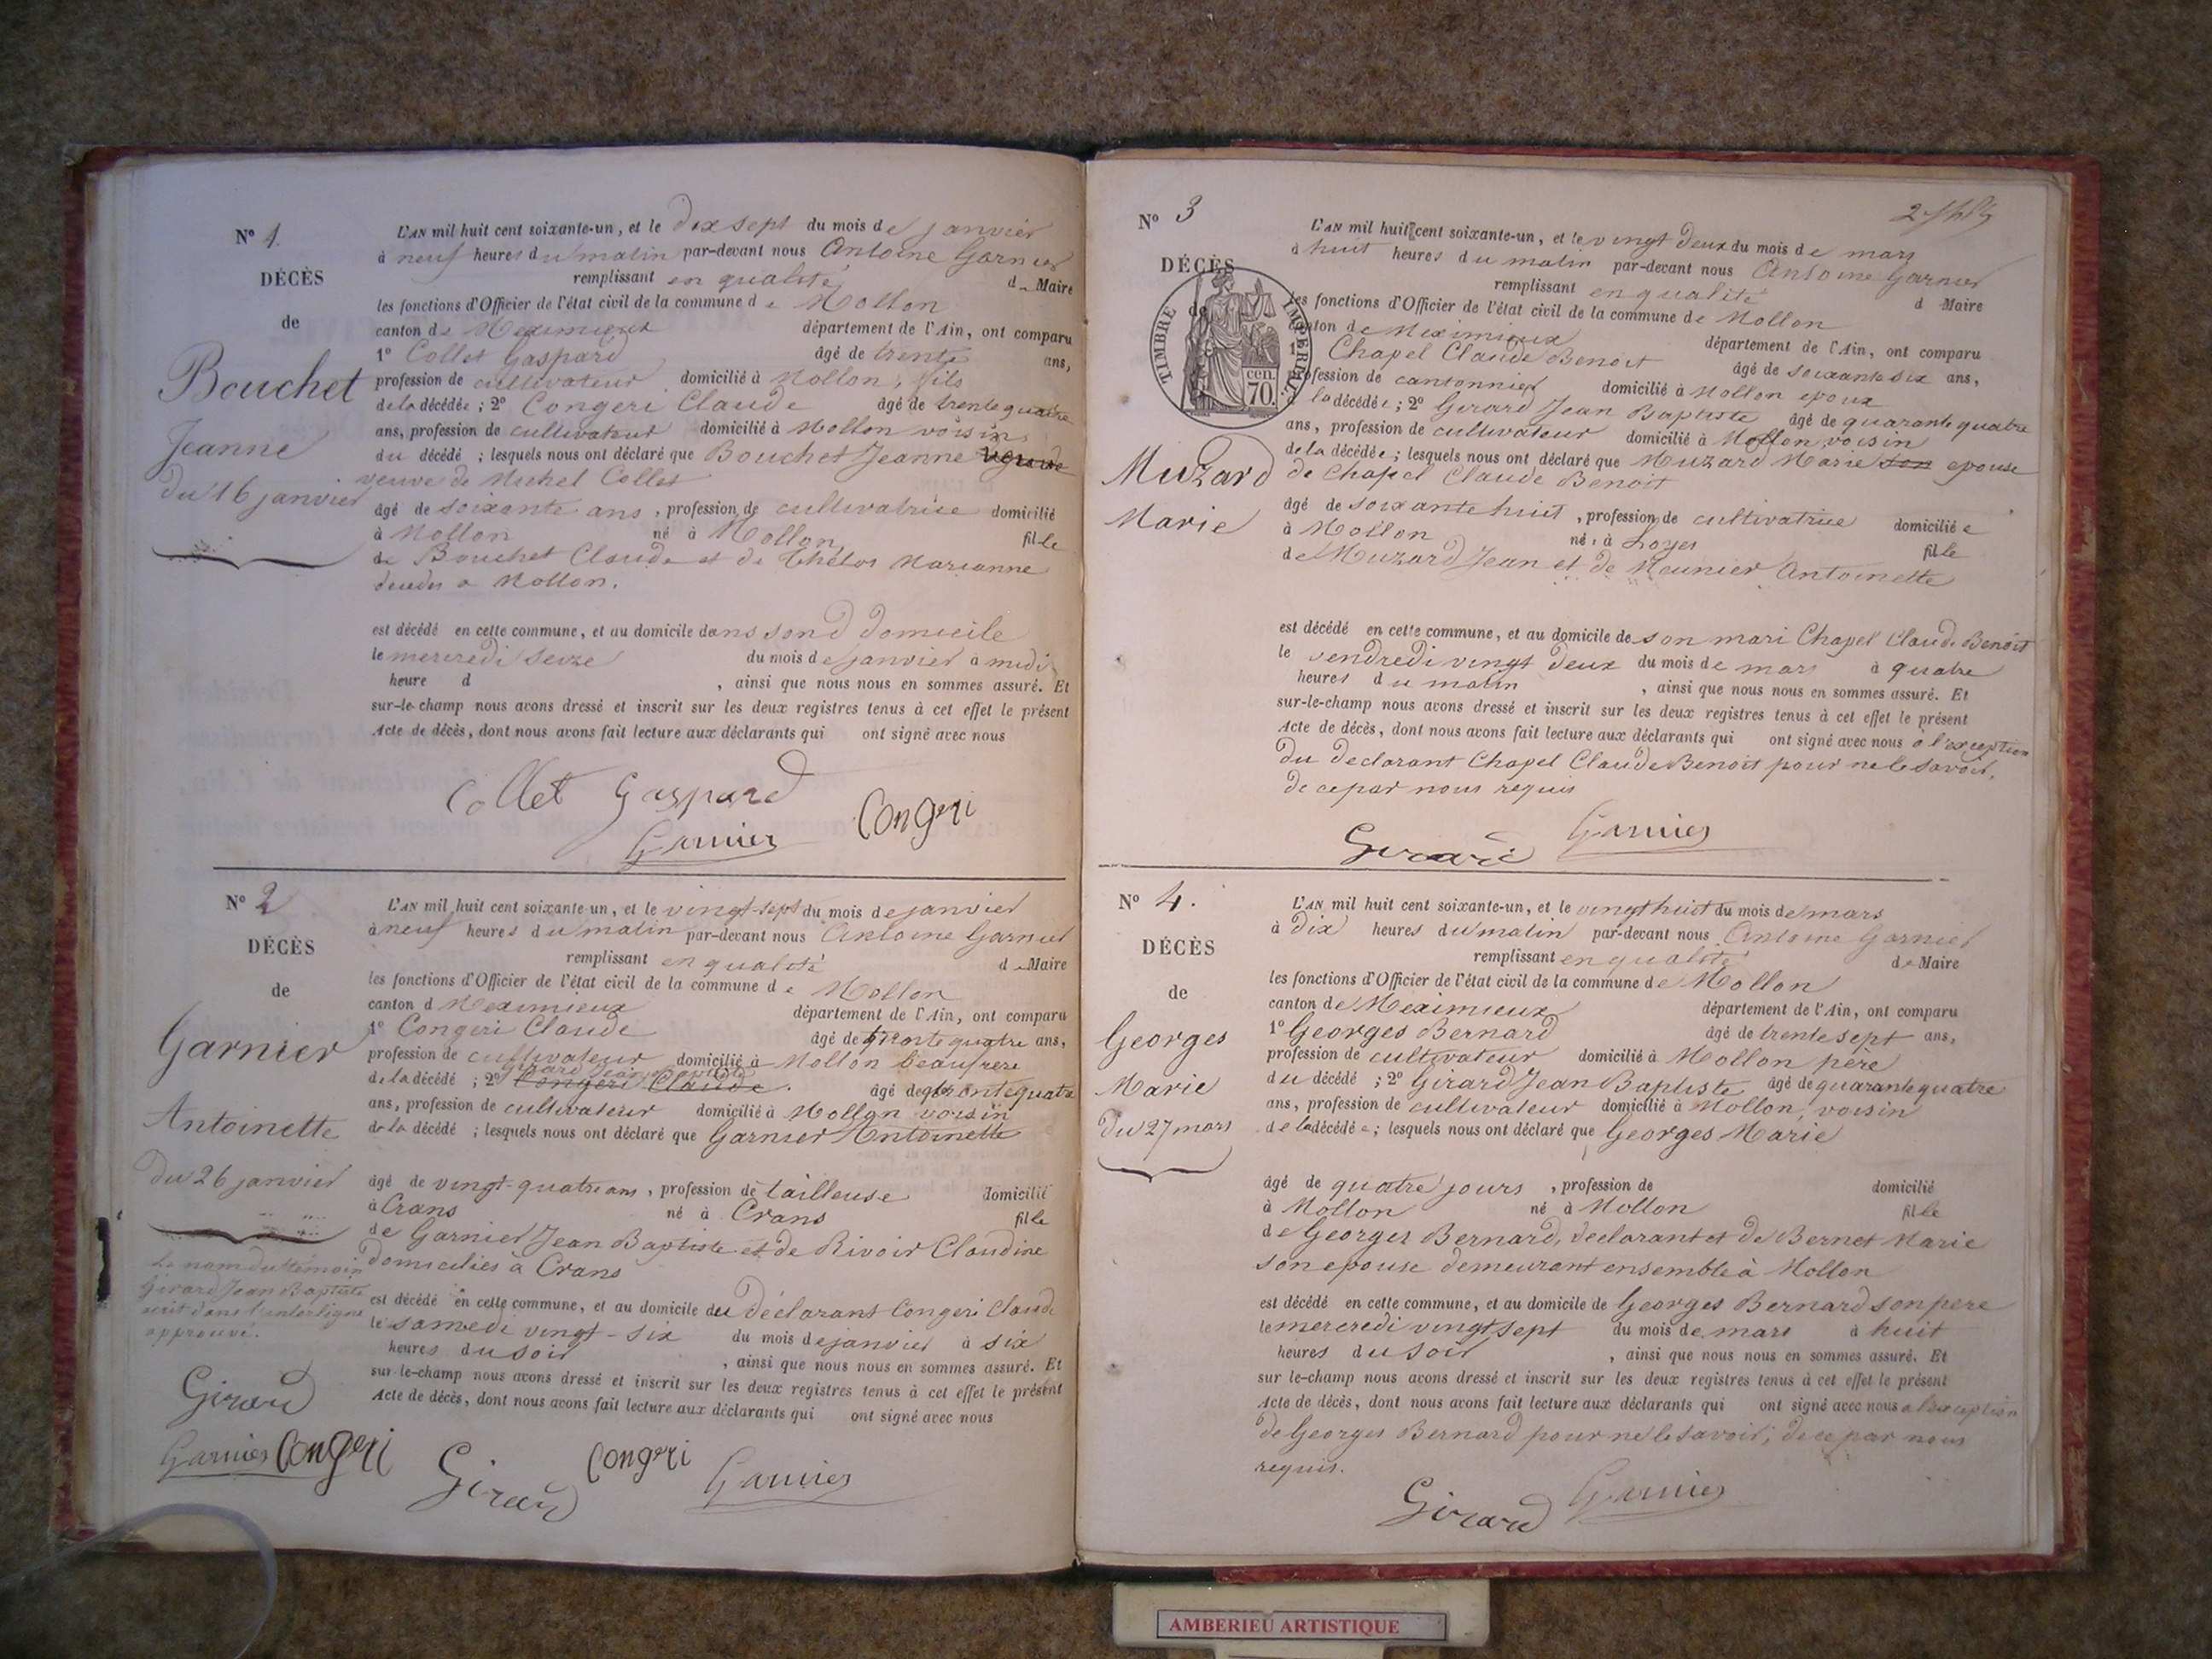 N° 1.
DÉCÈS
de
Bouchet
Jeanne
du 16 janvier
L'AN mil huit cent soixante-un, et le dix sept du mois de janvier
à neuf heures du matin par-devant nous Antoine Garnier
remplissant en qualité de Maire
les fonctions d'Officier de l'état civil de la commune de Mollon
canton de Meximieux département de l'Ain, ont comparu
1° Collet Gaspard âgé de trente ans,
profession de cultivateur domicilié à Mollon, fils
de la décédée ; 2° Congeri Claude âgé de trente quatre
ans, profession de cultivateur domicilié à Mollon voisin
du décédé ; lesquels nous ont déclaré que Bouchet Jeanne
veuve de Michel Collet
âgé de soixante ans, profession de cultivatrice domicilié
à Mollon né à Mollon fille
de Bouchet Claude et de Thélos Marianne
décédés a Mollon.
est décédé en cette commune, et au domicile dans sond domicile
le mercredi seize du mois de janvier à midi
heure d , ainsi que nous nous en sommes assuré. Et
sur-le-champ nous avons dressé et inscrit sur les deux registres tenus à cet effet le présent
Acte de décès, dont nous avons fait lecture aux déclarants qui ont signé avec nous
Collet Gaspard
Garnier Congeri
N° 2
DÉCÈS
de
Garnier
Antoinette
du 26 janvier
Le nom du témoin
Girard Jean Baptiste
écrit dans l'interligne
approuvé.
Girard
Garnier Congeri
L'AN mil huit cent soixante-un, et le vingt-sept du mois de janvier
à neuf heures du matin par-devant nous Antoine Garnier
remplissant en qualité de Maire
les fonctions d'Officier de l'état civil de la commune de Mollon
canton d Meximieux département de l'Ain, ont comparu
1° Congeri Claude âgé de trente quatre ans,
profession de cultivateur domicilié à Mollon beaufrere
Girard Jean Baptiste
de la décédé ; 2° Congeri Claude. âgé de quarante quatre
ans, profession de cultivateur domicilié à Mollon voisin
de la décédé ; lesquels nous ont déclaré que Garnier Antoinette
âgé de vingt-quatre ans, profession de tailleuse domicilié
à Crans né à Crans fille
de Garnier Jean Baptiste et de Rivoir Claudine
domiciliés à Crans
est décédé en cette commune, et au domicile du déclarant Congeri Claude
le samedi vingt-six du mois de janvier à six
heures du soir , ainsi que nous nous en sommes assuré. Et
sur-le-champ nous avons dressé et inscrit sur les deux registres tenus à cet effet le présent
Acte de décès, dont nous avons fait lecture aux déclarants qui ont signé avec nous
Girard Congeri Garnier
N° 3
DÉCÈS
de
TIMBRE IMPÉRIAL
cen.
70.
Muzard
Marie
L'AN mil huit cent soixante-un, et le vingt deux du mois de mars
à huit heures du matin par-devant nous Antoine Garnier
remplissant en qualité d Maire
les fonctions d'Officier de l'état civil de la commune de Mollon
canton de Meximieux département de l'Ain, ont comparu
1° Chapel Claude Benoit âgé de soixante six ans,
profession de cantonnier domicilié à Mollon epoux
de la décédée ; 2° Girard Jean Baptiste âgé de quarante quatre
ans, profession de cultivateur domicilié à Mollon voisin
de la décédée ; lesquels nous ont déclaré que Muzard Marie son epouse
de Chapel Claude Benoit
âgé de soixante huit, profession de cultivatrice domiciliée
à Mollon né à Loyes fille
de Muzard Jean et de Meunier Antoinette
est décédé en cette commune, et au domicile de son mari Chapel Claude Benoit
le vendredi vingt deux du mois de mars à quatre
heures du matin , ainsi que nous nous en sommes assuré. Et
sur-le-champ nous avons dressé et inscrit sur les deux registres tenus à cet effet le présent
Acte de décès, dont nous avons fait lecture aux déclarants qui ont signé avec nous a l'exception
du declarant Chapel Claude Benoit pour ne le savoir,
de ce par nous requis
Girard Garnier
N° 4.
DÉCÈS
de
Georges
Marie
du 27 mars
L'AN mil huit cent soixante-un, et le vingt huit du mois de mars
à dix heures du matin par-devant nous Antoine Garnier
remplissant en qualité de Maire
les fonctions d'Officier de l'état civil de la commune de Mollon
canton de Meximieux département de l'Ain, ont comparu
1° Georges Bernard âgé de trente sept ans,
profession de cultivateur domicilié à Mollon père
du décédé ; 2° Girard Jean Baptiste âgé de quarante quatre
ans, profession de cultivateur domicilié à Mollon, voisin
de la décédée ; lesquels nous ont déclaré que Georges Marie
âgé de quatre jours, profession de domicilié
à Mollon né à Mollon fille
de Georges Bernard, declarant et de Bernet Marie
son epouse demeurant ensemble à Mollon
est décédé en cette commune, et au domicile de Georges Bernard son pere
le mercredi vingt sept du mois de mars à huit
heures du soir , ainsi que nous nous en sommes assuré. Et
sur le-champ nous avons dressé et inscrit sur les deux registres tenus à cet effet le présent
Acte de décès, dont nous avons fait lecture aux déclarants qui ont signé avec nous a l'exception
de Georges Bernard pour ne le savoir, de ce par nous
requis.
Girard Garnier
AMBERIEU ARTISTIQUE